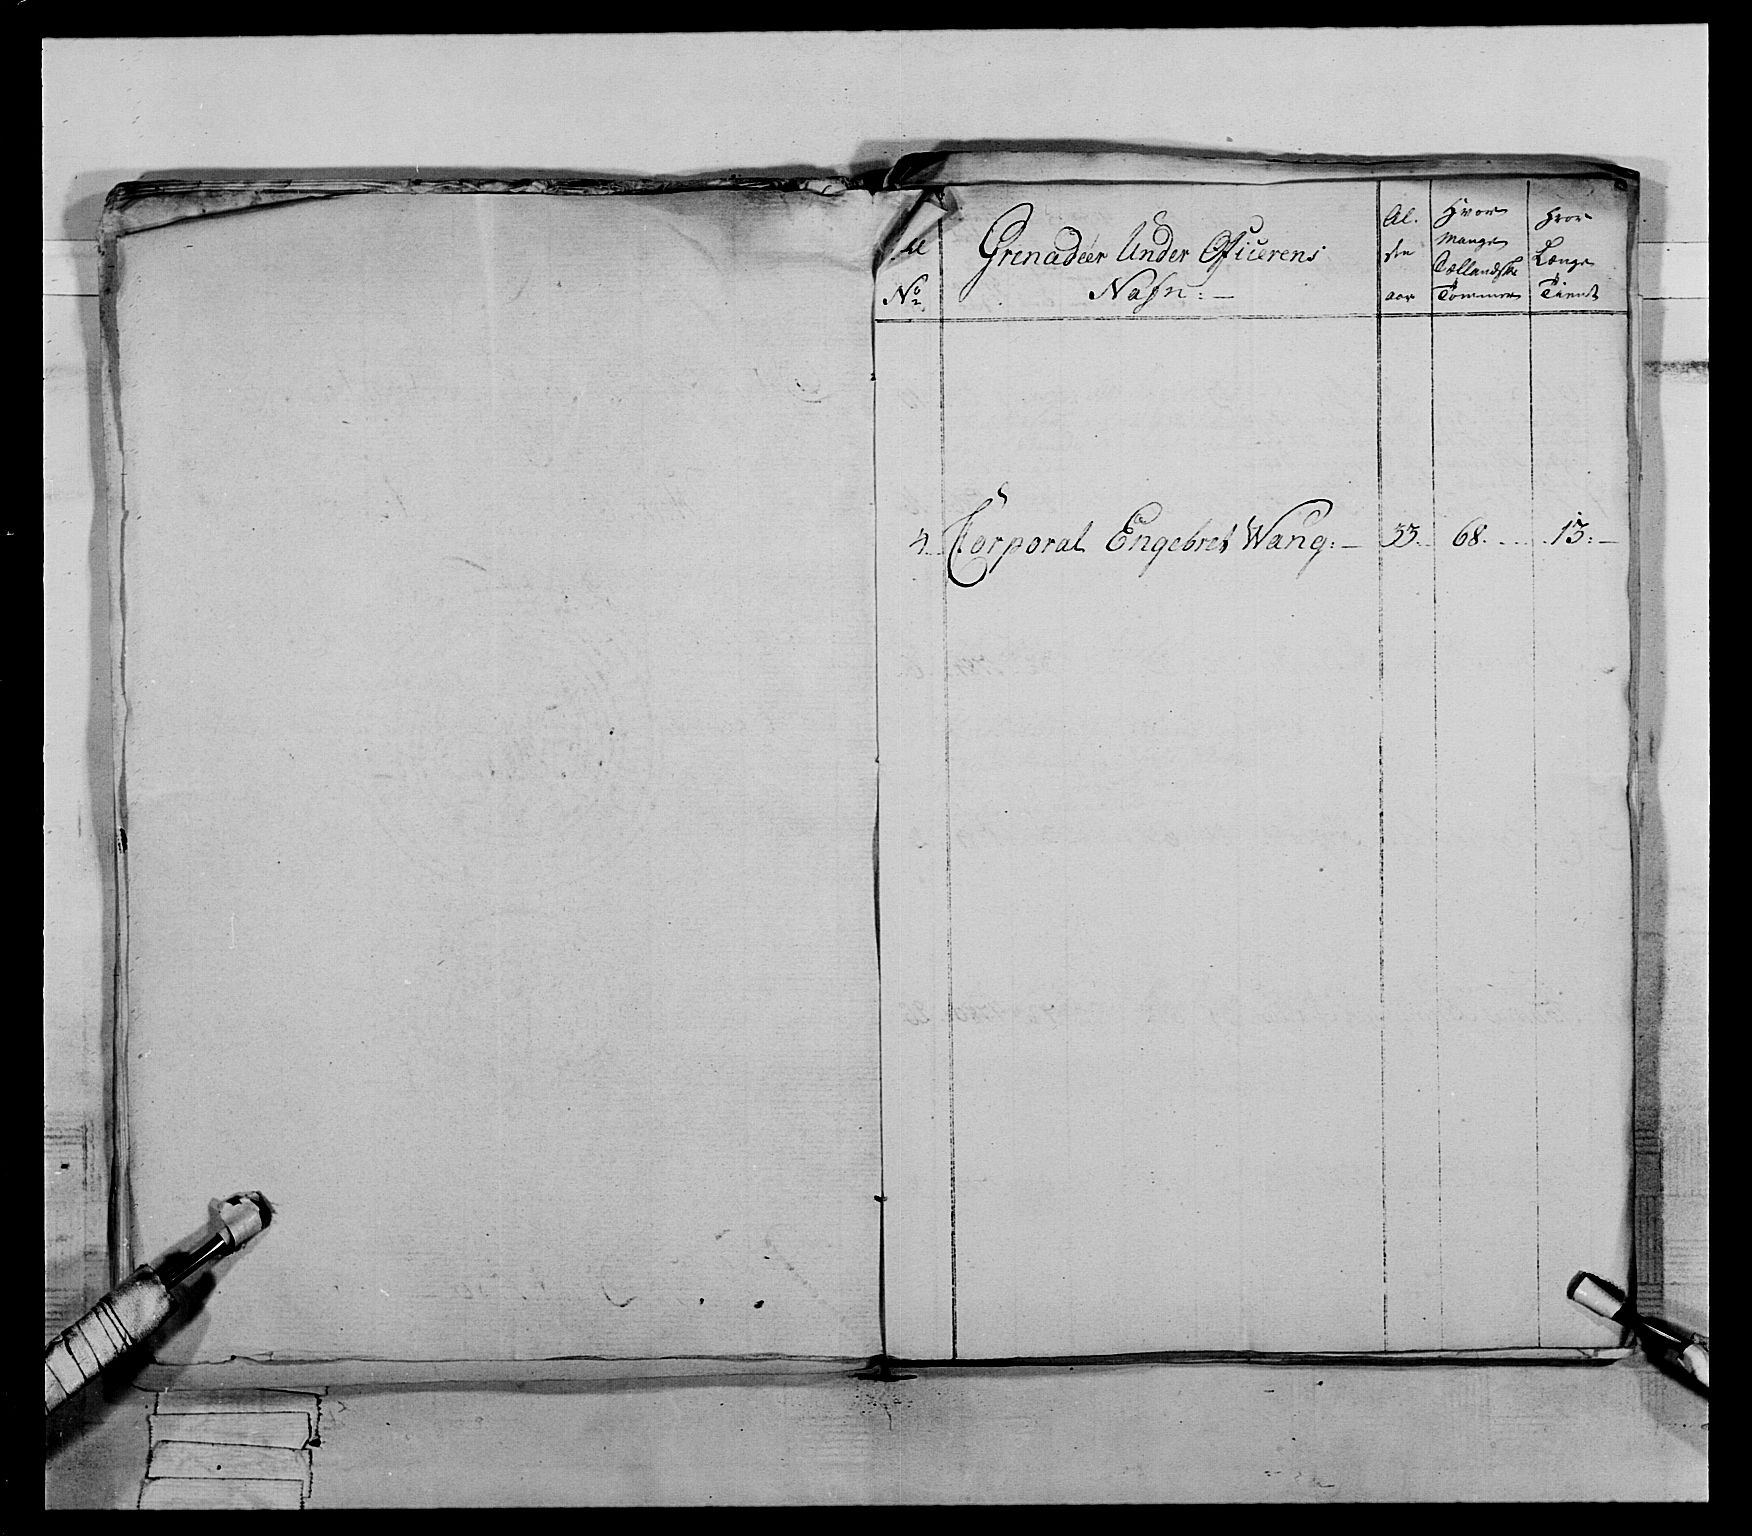 No
Grenadéer Under Officerens
Nafn:—
Al.
der
aar
Hvor
mange
Sællandske
Tommer
Hvor
Længe
Tient
4. Corporal Engebret Wang:— 33. 68. 13:—